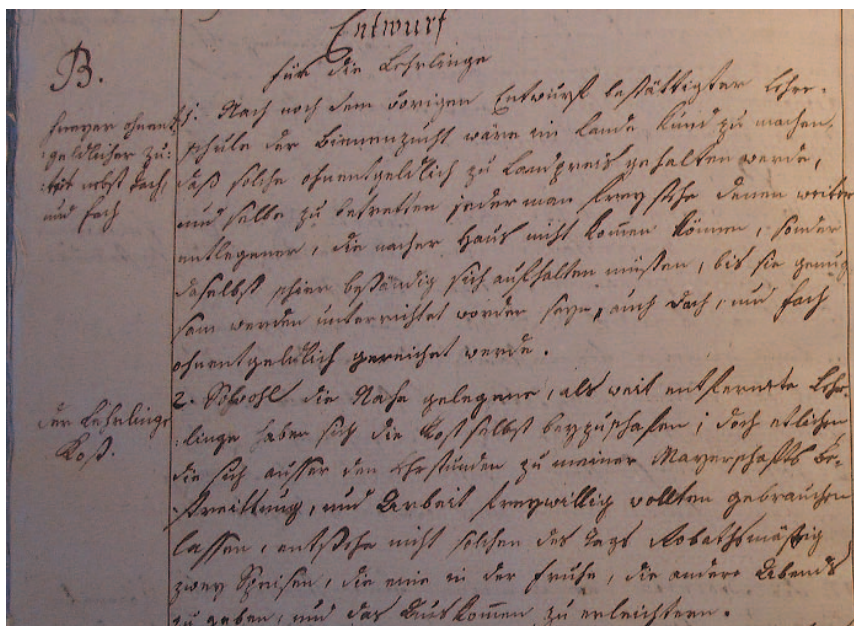 Entwurf
für die Lehrlinge
B.
freyer ohnent-
geldlicher Zu-
tritt nebst Dach,
und Fach
1. Nach noch dem vorigen Entwurf bestättigter Lehr-
schule der Bienenzucht wäre im Lande kund zu machen,
daß solche ohnentgeldlich zu Landpreis gehalten werde,
und selbe zu betretten jederman frey stehe denen weiter
entlegenen, die nacher Haus nicht kommen können, sonder
daselbst schier beständig sich aufhalten müsten, bis sie genug
sam werden unterrichtet worden seyn, auch Dach, und Fach
ohnentgeldlich gereichet werde.
der Lehrlinge
Kost.
2. Sowohl die Nahe gelegene, als weit entfernte Lehr-
linge haben sich die Kost selbst beyzuschafen; doch etlichen
die sich ausser den Lehrstunden zu meiner Mayerschafts Be-
streittung, und Arbeit freywillig wollten gebrauchen
lassen, entstehe nicht solchen des Tags Robathsmäßig
zwey Speisen, die eine in der Fruhe, die andere Abends
zu geben, und das Auskommen zu erleichtern.